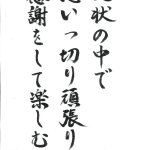 状の中で
思いっ切り頑張り
感謝をして楽しむ